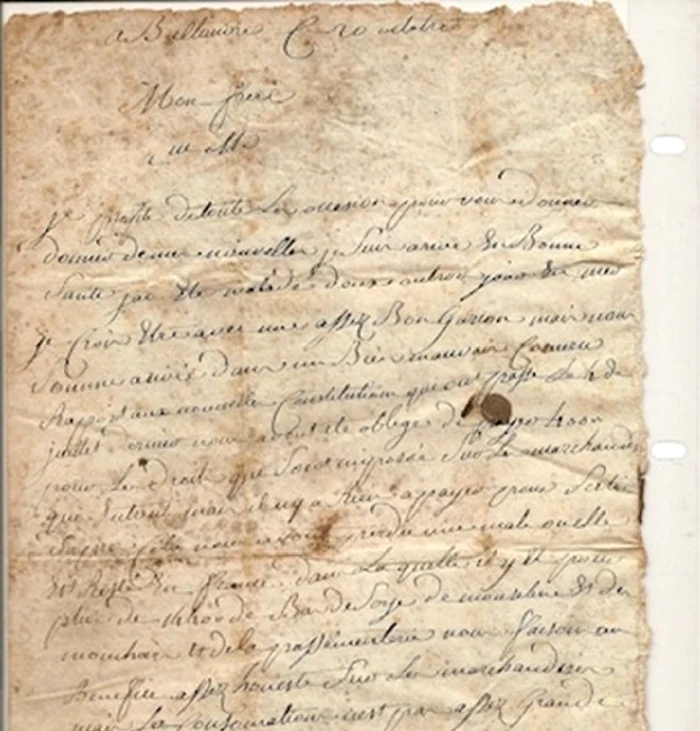 a Baltimore Ce 20 octobre
Mon frere
je profite de toute les occasion pour vous donner
donner de mes nouvelles je suis arrivé En Bonne
Santé jai Été malade deux ou trois jour En mer
je Crois Être avec une assez Bon Garson mais nous
Somme arrivé dans un Bien mauvais
Rapport aux nouvelle Constitution que ont passé le 4 de
juillet dernier nous avont été oblige de payer 4000
pour les droit que sont imposée sur les marchandis
que Entrent mais il ny a Rien a payer pour Sortir
nous avont perdu une male ou elle
Est Resté En france dans La quelle il y Et pour
plus de de Bas de Soye de mouseline Et des
mouchoir Et de la passementerie nous faison un
Benefice assez honeste Sur les marchandises
mais La Consomation nest pas assez Grande